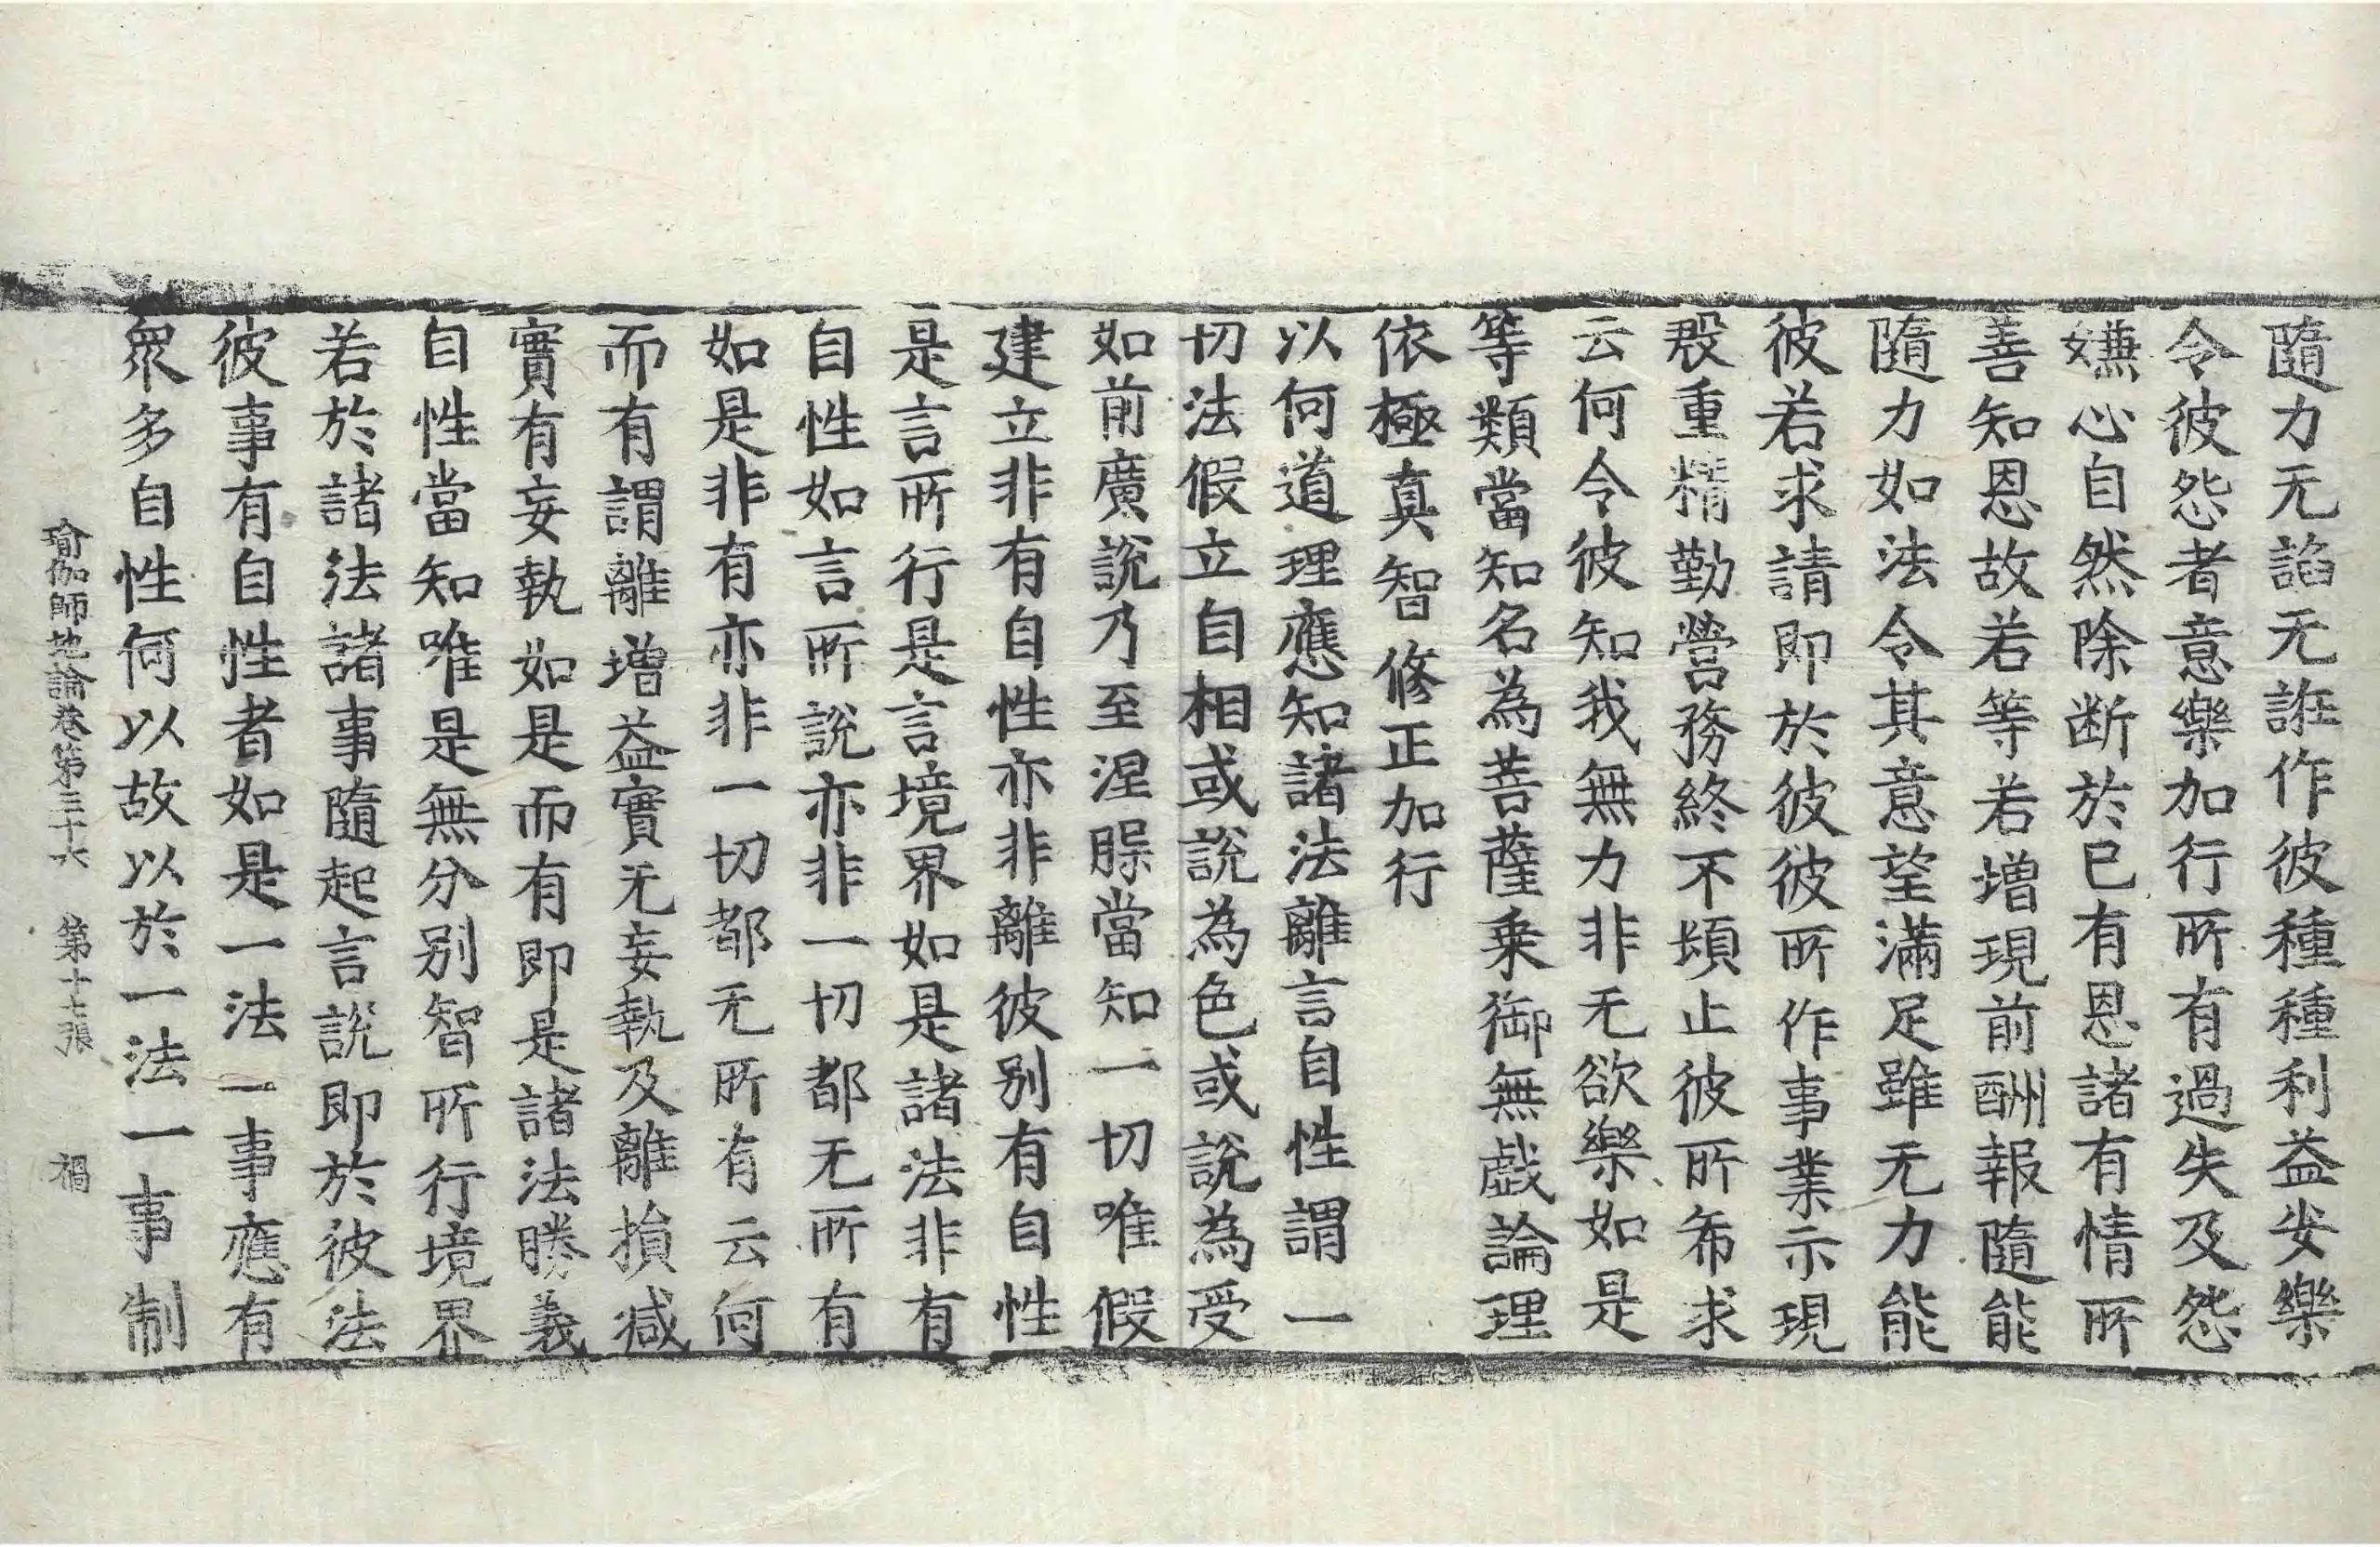 隨力无諂无誑作彼種種利益安樂
令彼怨者意樂加行所有過失及怨
嫌心自然除断於已有恩諸有情所
善知恩故若等若增現前酬報隨能
隨力如法令其意望滿足雖无力能
彼若求請即於彼彼所作事業示現
殷重精勤營務終不頓止彼所希求
云何令彼知我無力非无欲樂如是
等類當知名為菩薩乗御無戯論理
依極真智修正加行
以何道理應知諸法離言自性謂一
切法假立自相或說為色或說為受
如前廣說乃至涅槃當知一切唯假
建立非有自性亦非離彼別有自性
是言所行是言境界如是諸法非有
自性如言所說亦非一切都无所有
如是非有亦非一切都无所有云何
而有謂離增益實无妄執及離損减
實有妄執如是而有即是諸法勝義
自性當知唯是無分別智所行境界
若於諸法諸事隨起言說即於彼法
彼事有自性者如是一法一事應有
衆多自性何以故以於一法一事制
瑜伽師地論卷第三十六 第十七張 禍